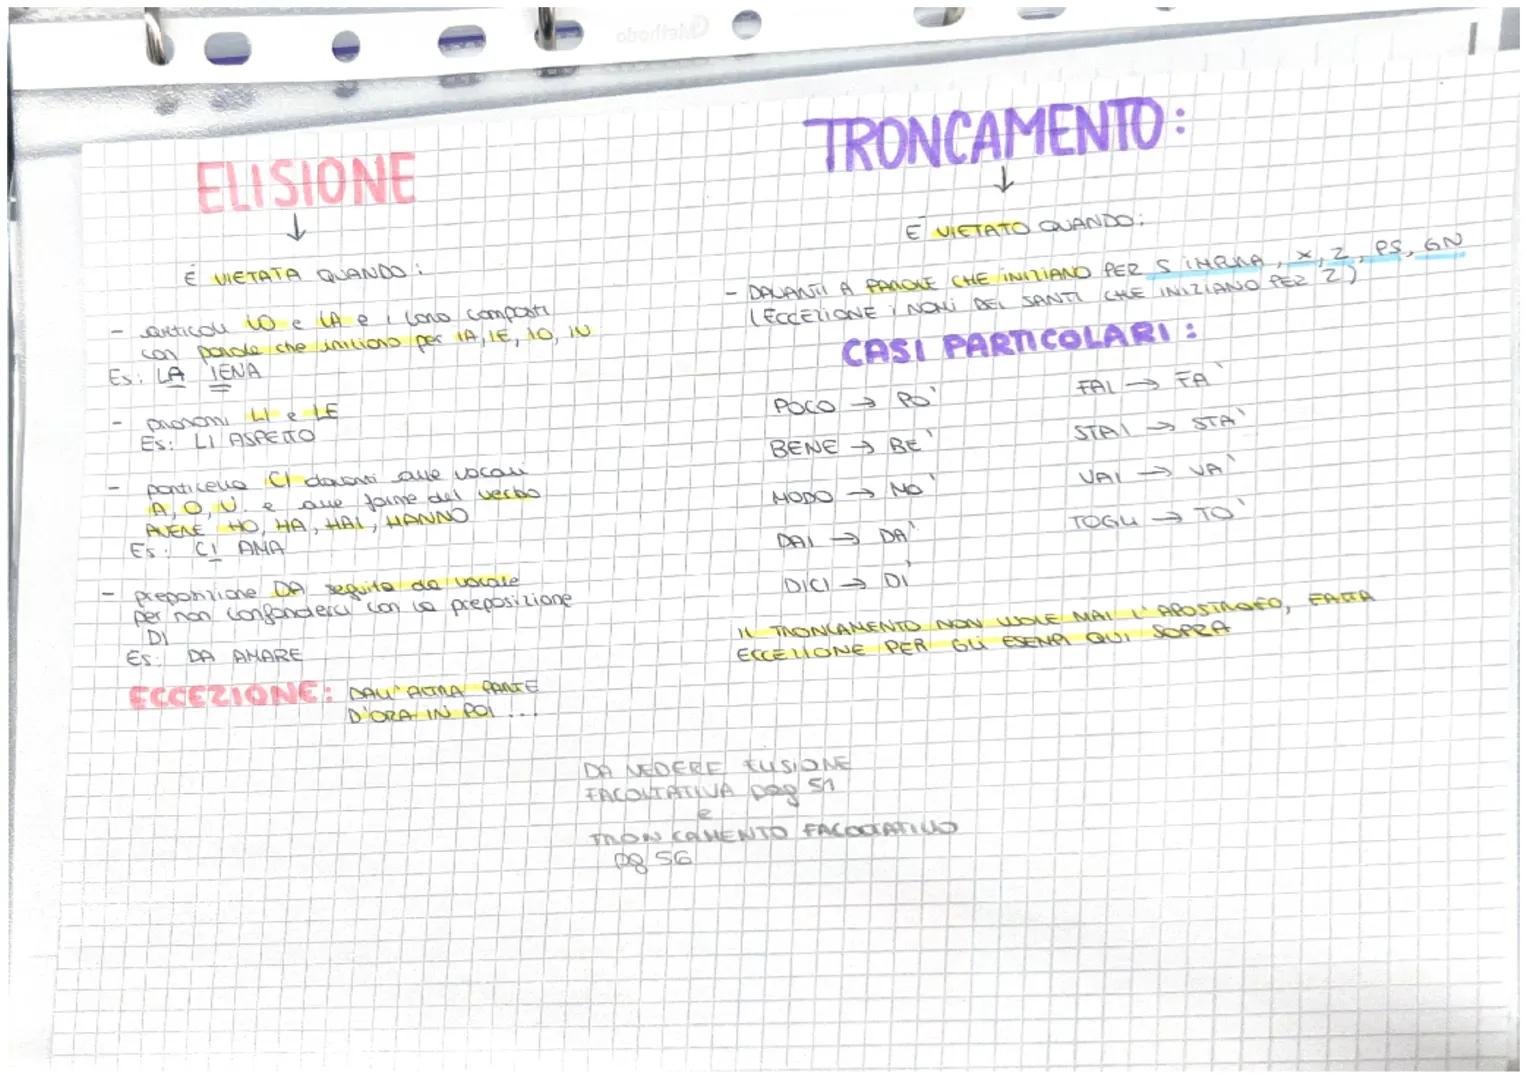 ELISIONE
↓
É VIETATA QUANDO:
- articoli LO e LA e i loro composti
con parole che iniziano per IA, IE, IO, IU
Es: LA IENA
- pronomi LI e LE
Es: LI ASPETTO
- particella CI davanti alle vocali
A, O, U. e alle forme del verbo
AVERE HO, HA, HAI, HANNO
Es: CI AMA
- preposizione DA seguita da vocale
per non confonderci con la preposizione
DI
Es: DA AMARE
ECCEZIONE: DALL'ALTRA PARTE
D'ORA IN POI ...
TRONCAMENTO:
↓
É VIETATO QUANDO:
- DAVANTI A PAROLE CHE INIZIANO PER S IMPURA, X, Z, PS, GN
(ECCEZIONE i NOMI DEI SANTI CHE INIZIANO PER Z)
CASI PARTICOLARI:
POCO → PO'
BENE → BE'
MODO → MO'
DAI → DA'
DICI → DI'
FAI → FA'
STAI → STA'
VAI → VA'
TOGLI → TO'
IL TRONCAMENTO NON VUOLE MAI L'APOSTROFO, FATTA
ECCEZIONE PER GLI ESEMPI QUI SOPRA
DA VEDERE ELISIONE
FACOLTATIVA pag 51
e
TRONCAMENTO FACOLTATIVO
pg 56
Methodo